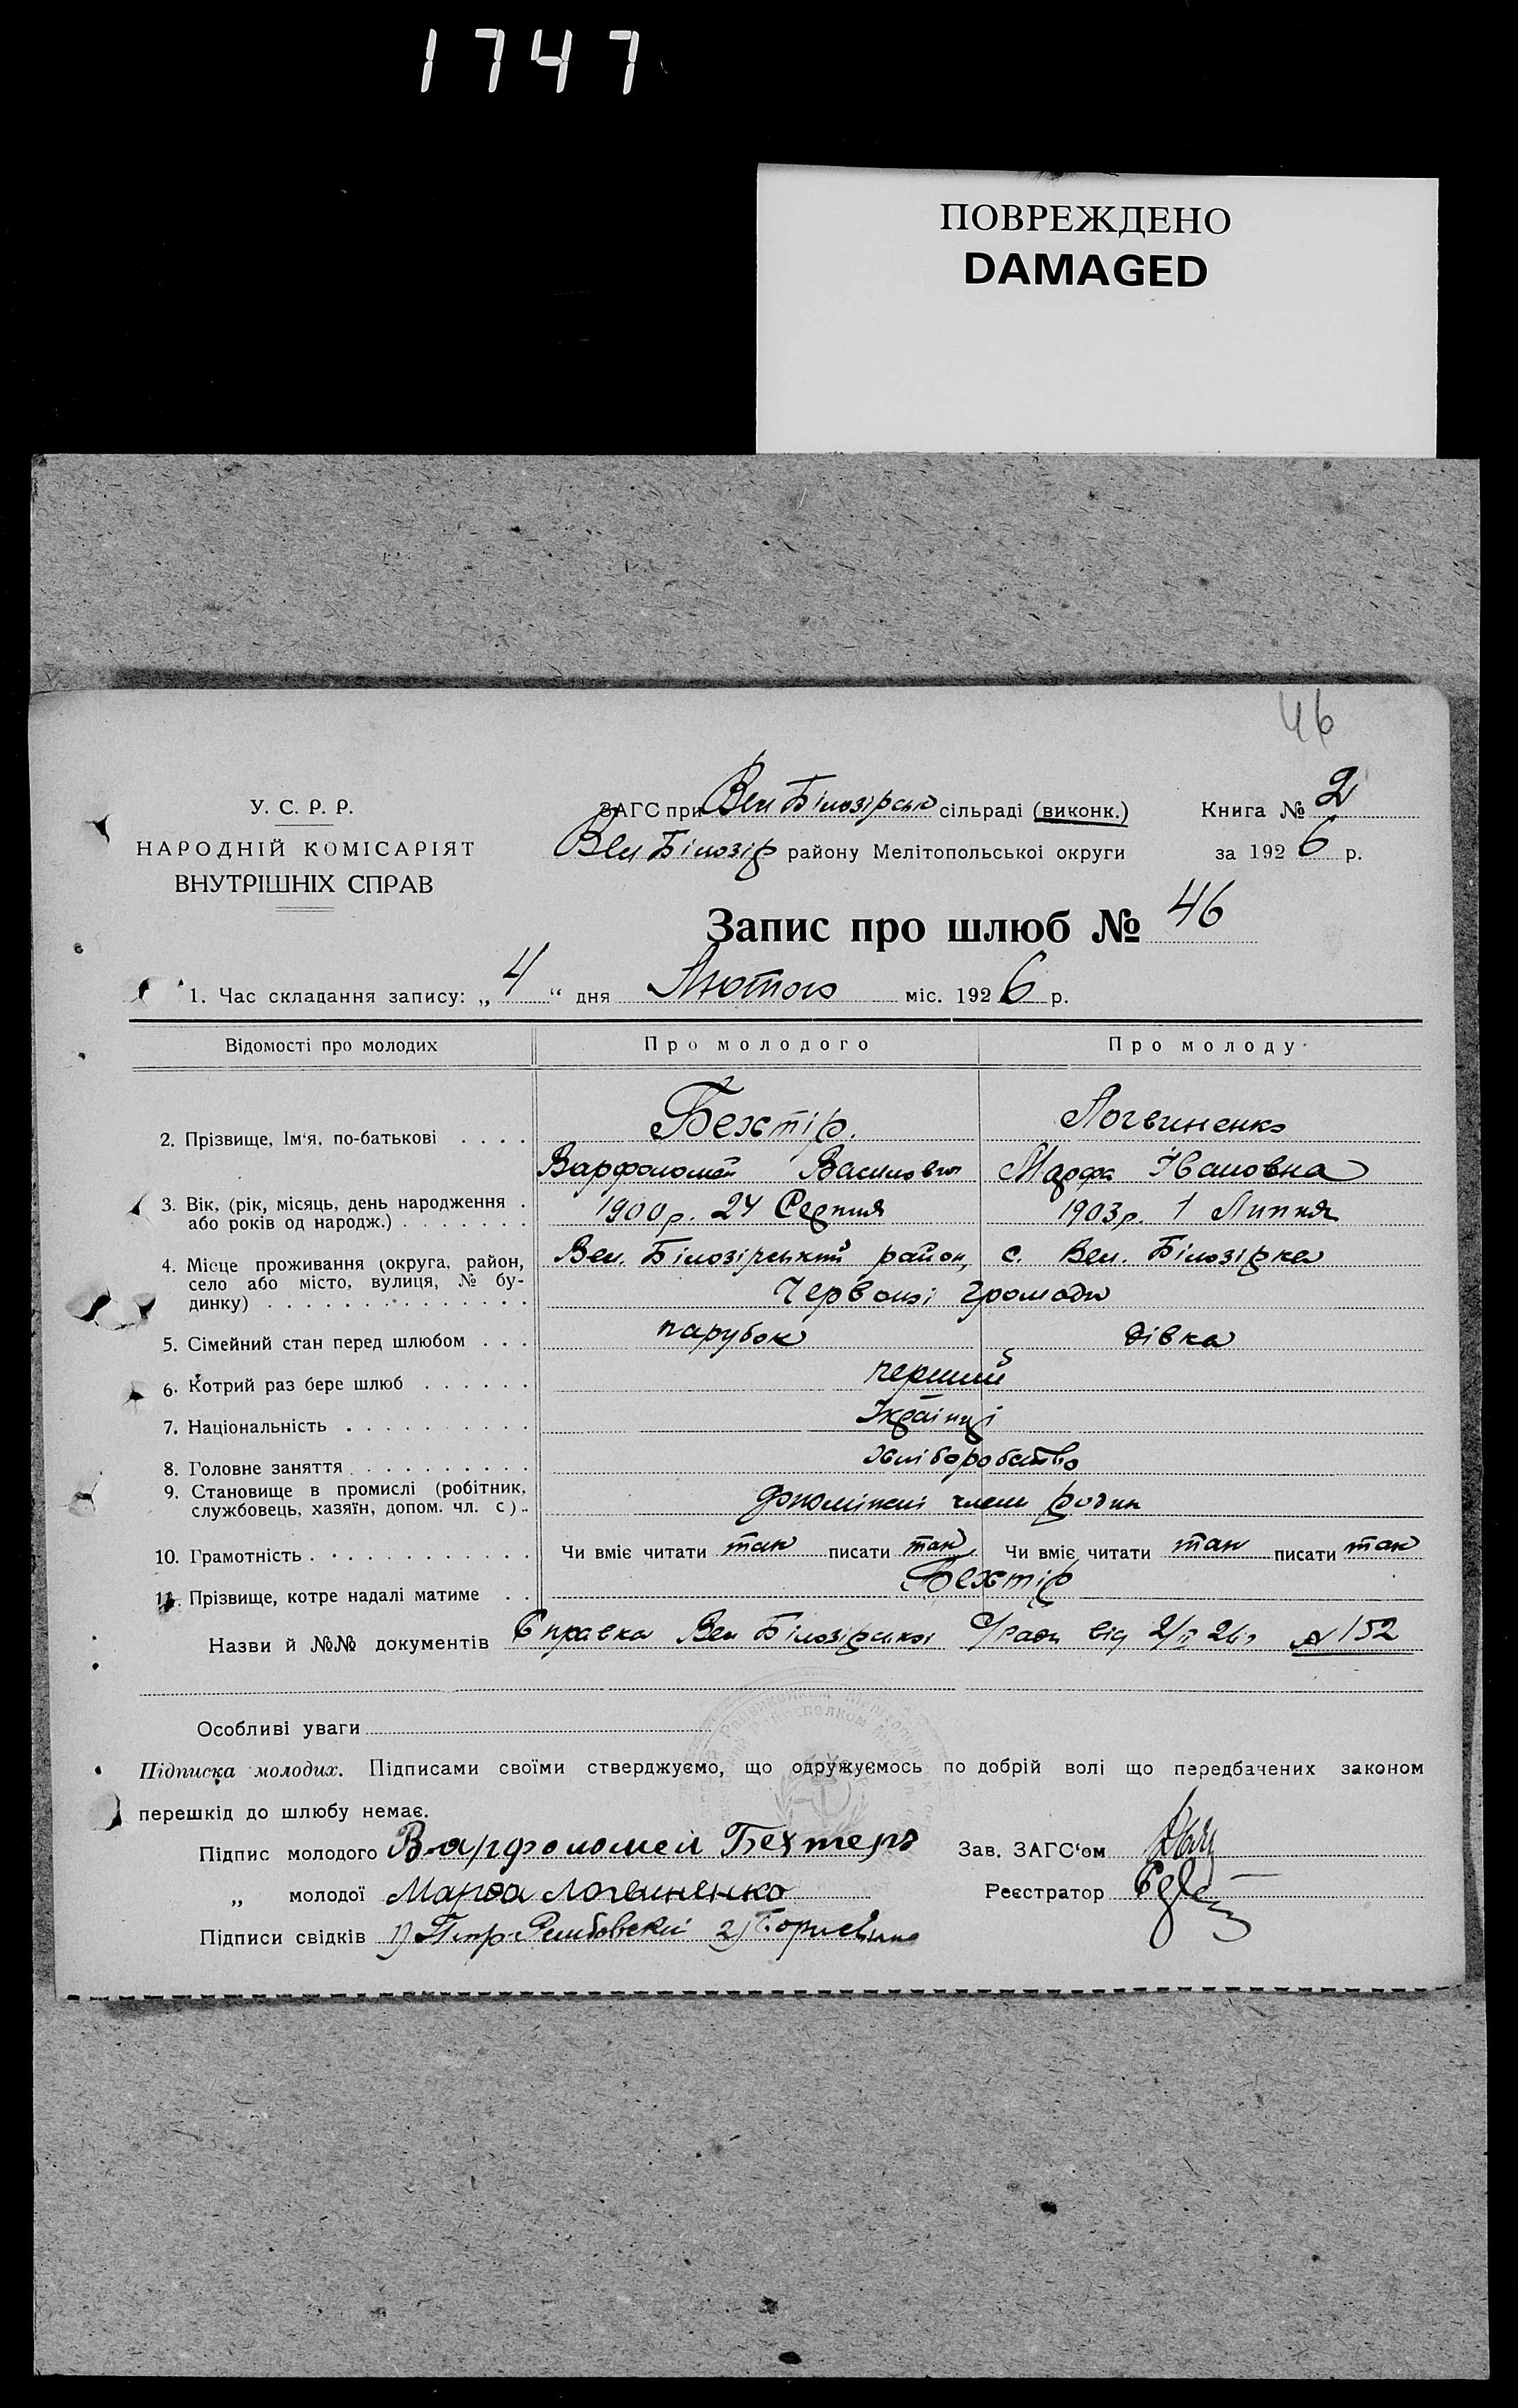 1747
ПОВРЕЖДЕНО
DAMAGED
46
У. С. Р. Р.
НАРОДНІЙ КОМІСАРІЯТ
ВНУТРІШНІХ СПРАВ
ЗАГС при Вел Білозірськ сільраді (виконк.)
Вел Білозір району Мелітопольської округи
Книга № 2
за 1926 р.
Запис про шлюб № 46
1. Час складання запису: „4“ дня Лютого міс. 1926 р.
Відомості про молодих Про молодого Про молоду
2. Прізвище, Ім‘я, по-батькові Бехтір. Логвиненко
Варфоломей Василович Марфа Івановна
3. Вік, (рік, місяць, день народження або років од народж.) 1900 р. 24 Серпня 1903 р. 1 Липня
4. Місце проживання (округа, район, село або місто, вулиця, № будинку) Вел. Білозірський район, с. Вел. Білозірка
Червоної громади
5. Сімейний стан перед шлюбом парубок дівка
6. Котрий раз бере шлюб перший
7. Національність Українці
8. Головне заняття хліборобство
9. Становище в промислі (робітник, службовець, хазяїн, допом. чл. с) члени родин
10. Грамотність Чи вміє читати так писати так Чи вміє читати так писати так
11. Прізвище, котре надалі матиме Бехтір
Назви й №№ документів Справка Вел Білозірської С/ради від 2/II 26 р № 152
Особливі уваги
Підписка молодих. Підписами своїми стверджуємо, що одружуємось по добрій волі що передбачених законом
перешкід до шлюбу немає.
Підпис молодого Варфоломей Бехтеръ Зав. ЗАГС‘ом
„ молодої Марθа Логвиненко Реєстратор
Підписи свідків 1) 2)